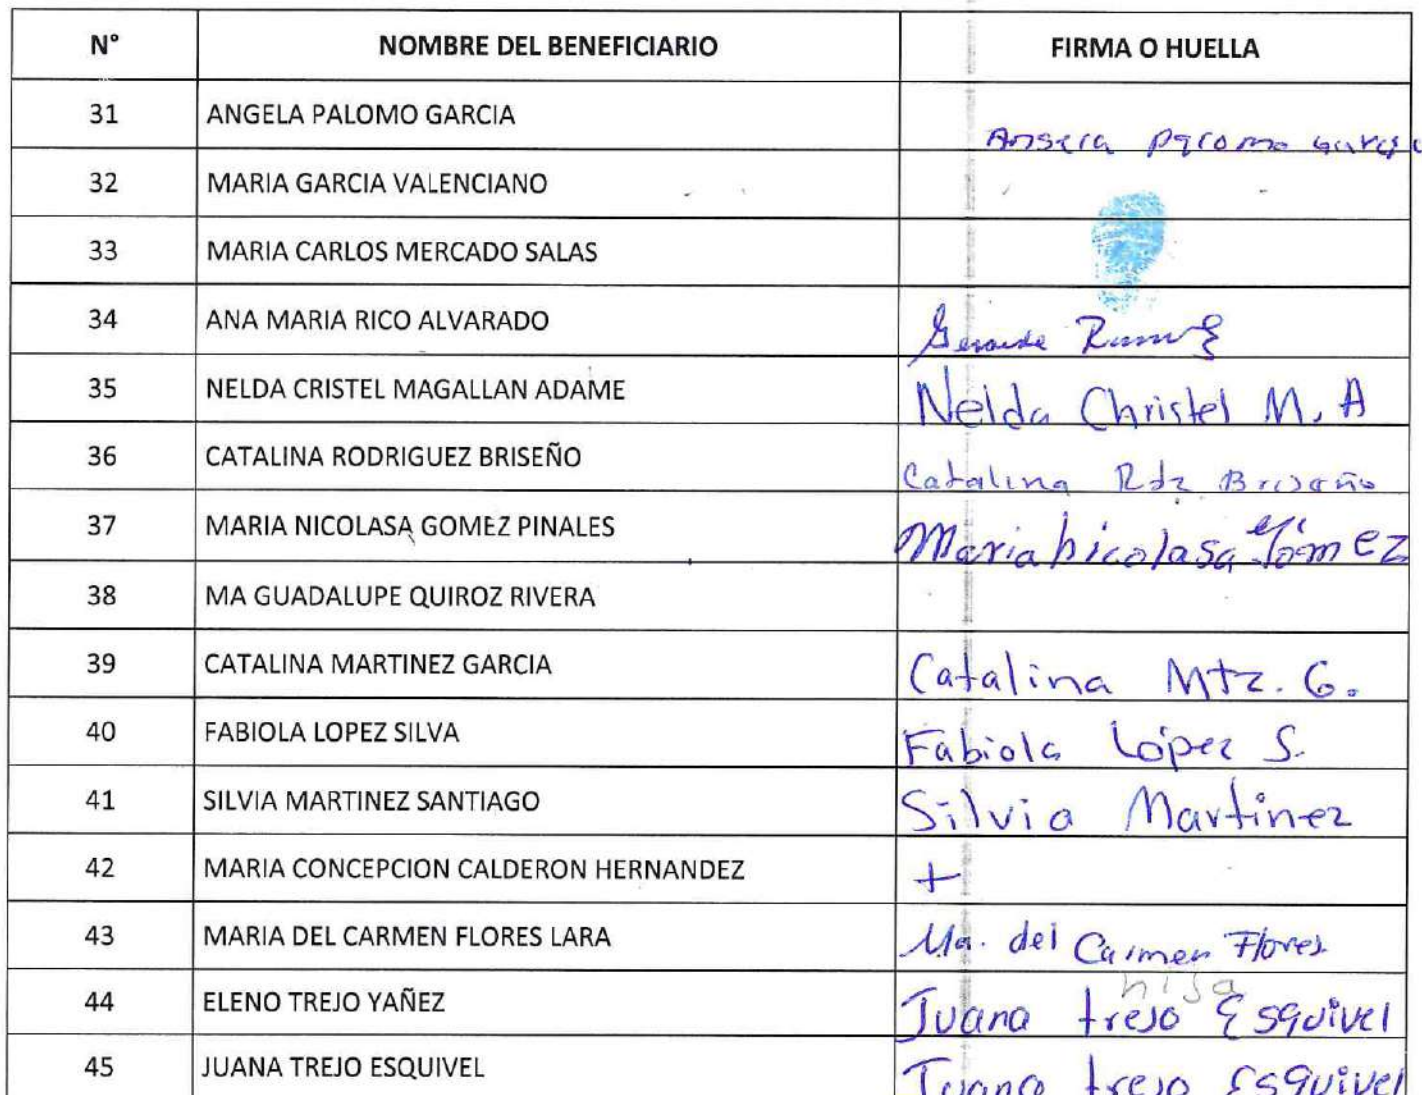 N° NOMBRE DEL BENEFICIARIO FIRMA O HUELLA
31 ANGELA PALOMO GARCIA
32 MARIA GARCIA VALENCIANO
33 MARIA CARLOS MERCADO SALAS
34 ANA MARIA RICO ALVARADO
35 NELDA CRISTEL MAGALLAN ADAME Nelda Christel M. A
36 CATALINA RODRIGUEZ BRISEÑO Catalina Rdz Briseño
37 MARIA NICOLASA GOMEZ PINALES Maria nicolasa Gómez
38 MA GUADALUPE QUIROZ RIVERA
39 CATALINA MARTINEZ GARCIA Catalina Mtz. G.
40 FABIOLA LOPEZ SILVA Fabiola López S.
41 SILVIA MARTINEZ SANTIAGO Silvia Martinez
42 MARIA CONCEPCION CALDERON HERNANDEZ +
43 MARIA DEL CARMEN FLORES LARA Ma. del Carmen Flores
hija
44 ELENO TREJO YAÑEZ Juana trejo Esquivel
45 JUANA TREJO ESQUIVEL Juana trejo Esquivel